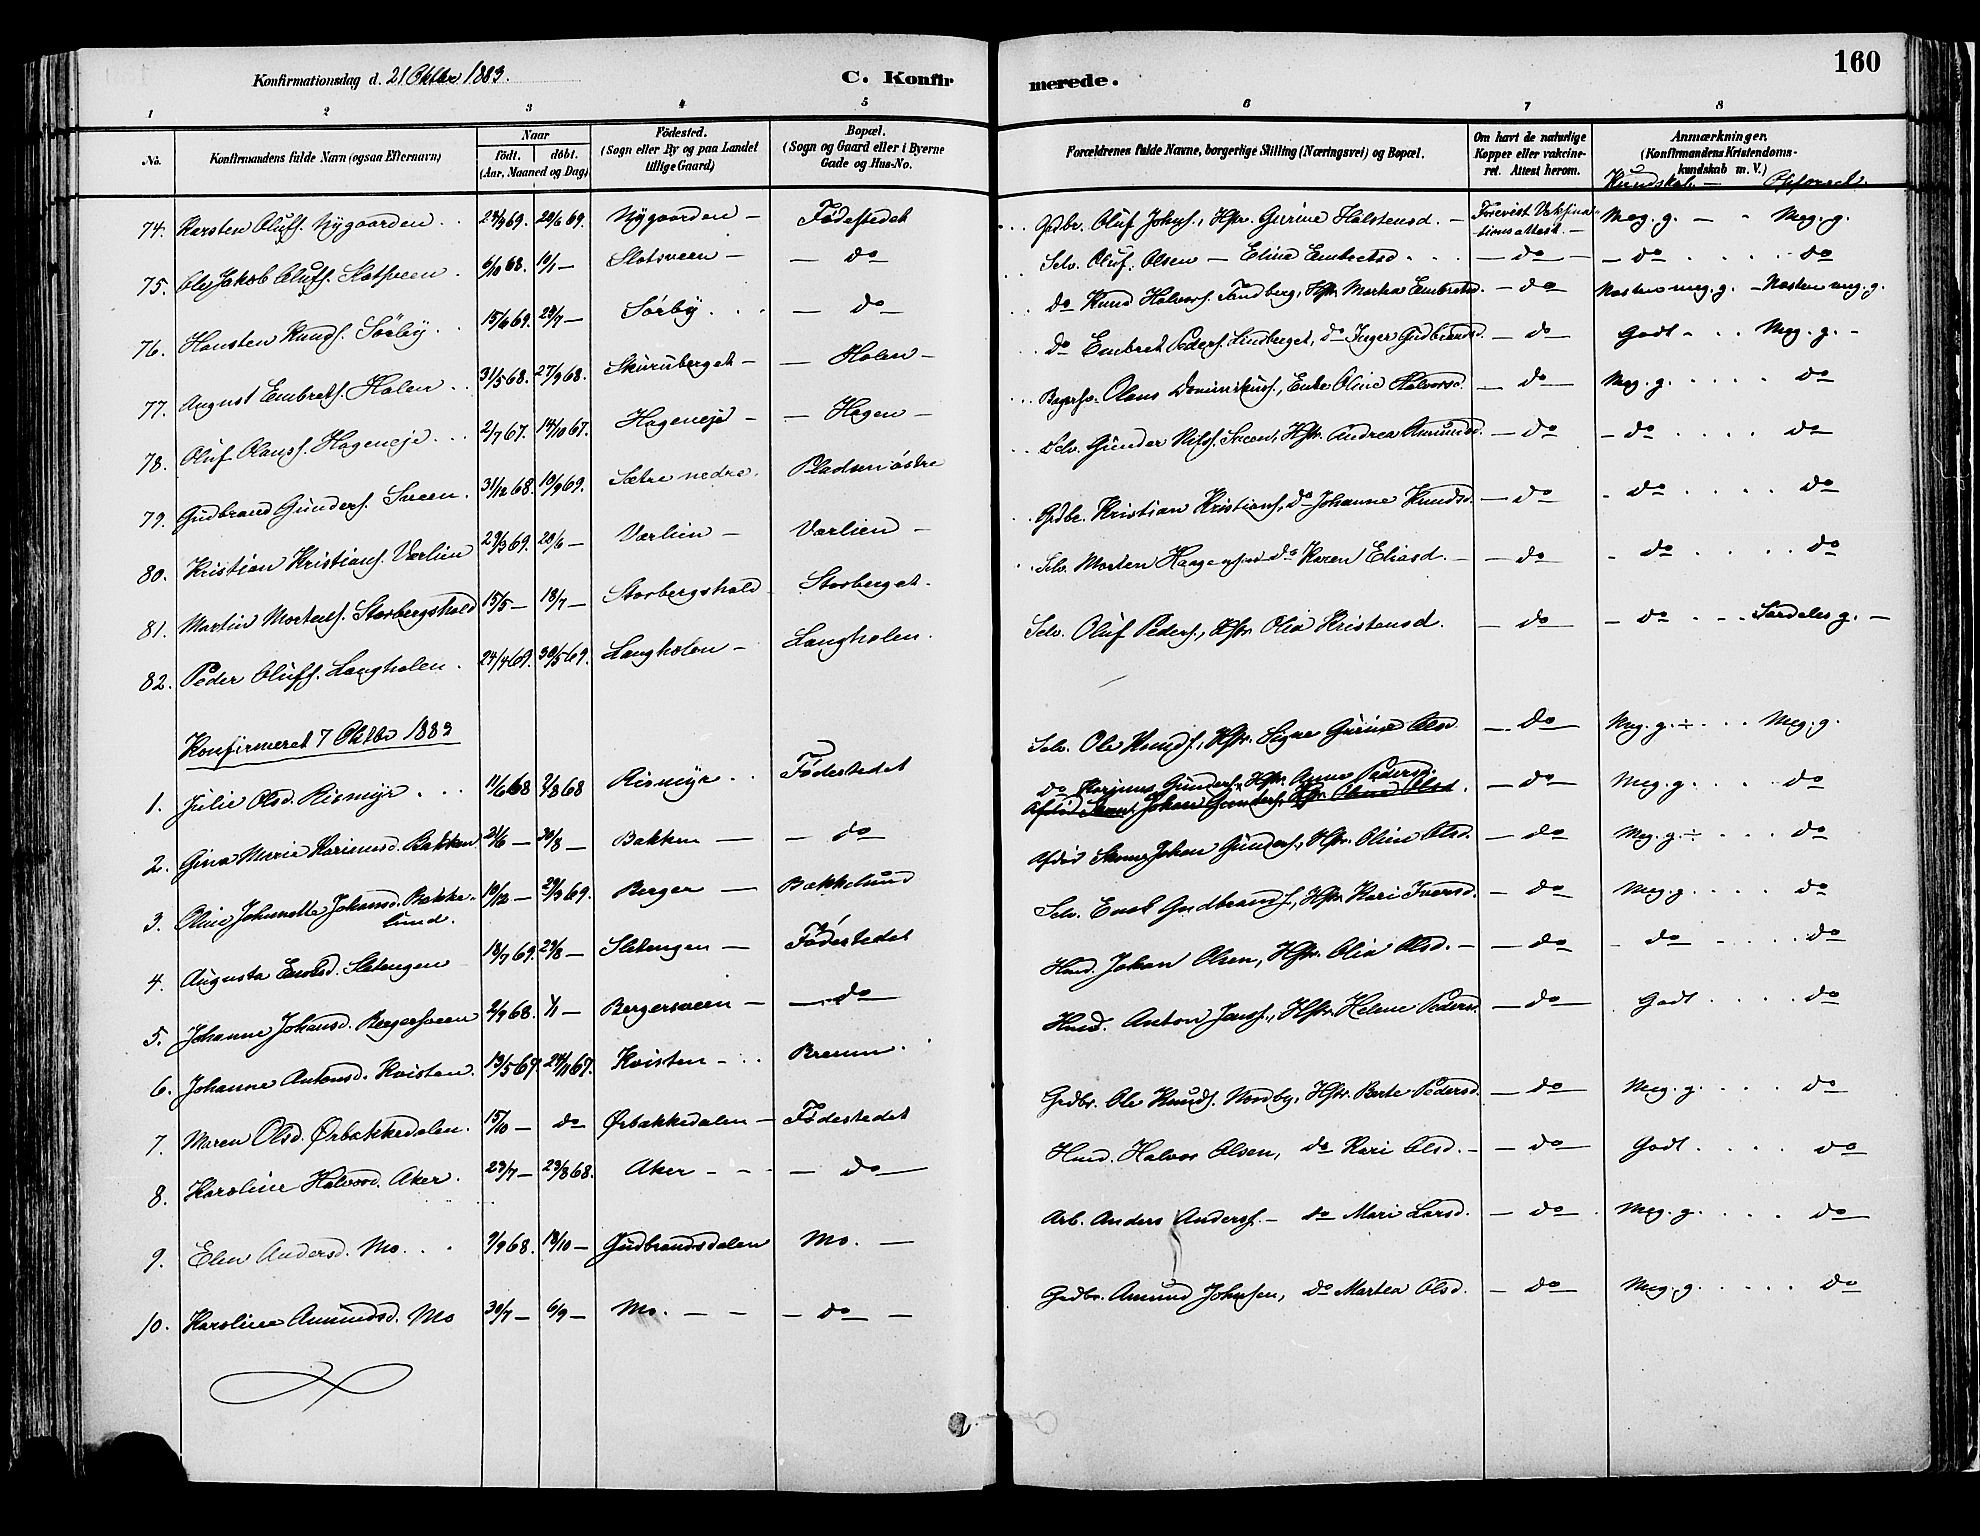 160
Konfirmationsdag d. 21 Oktbr 1883.
C. Konfirmerede.
1 2 3 4 5 6 7 8
No. Konfirmandens fulde Navn (ogsaa Efternavn) Naar födt. döbt. (Aar, Maaned og Dag) Födested. (Sogn eller By og paa Landet tillige Gaard) Bopæl. (Sogn og Gaard eller i Byerne Gade og Hus-No. Forældrenes fulde Navne, borgerlige Stilling (Næringsvei) og Bopæl. Om havt de naturlige Kopper eller vakcineret. Attest herom. Anmærkninger. (Konfirmandens Kristendomskundskab m. V.)
Kundskab —
74. Karsten Olufs. Nygaarden 69. 20/6 69. Nygaarden — Fødestedet Gdbr. Oluf Johns., Hstr. Gurine Halstensd. — Forevist Vakcinationsattest. — Meg. g. — Meg. g.
75. Ole Jakob Olufs. Slotsveen 6/10 68. 10/1 — Slotsveen — — do Selv. Oluf Olsen — Eline Embretsd — do — — do do
76. Hansten Knuds. Sørby 15/6 69. 29/7 — Sørby — do do Knud Halvors. Sandberg, Hstr. Marthea Embretsd. — do Næsten meg. g. — Næsten meg. g.
77. August Embrets. Holen 31/5 68. 27/9 68. Skuruberget — — Holen — do Embret Peders. Lindberget, do Inger Gudbrandsd. — do Godt — Meg. g. —
78. Oluf Olauss. Hageneje 2/7 67. 14/10 67. Hageneje — — Hagen — Olaus Dominikuss., Enke Oline Halvorsd. — do Meg. g. do
79. Gudbrand Gunders. Sveen 31/12 68. 10/9 69. Sætre nedre Pladsen østre Selv. Gunder Nilss. Sveen, Hstr. Andrea Amundsd. — do — do do
80. Kristian Kristians. Værlien 29/3 69. 20/6 — Værlien — Værlien — Gdbr. Kristian Kristians., do Johanne Knudsd. — do — do do
81. Martin Mortens. Storbergshold 15/5 — 18/7 — Storbergshold Storberget. Selv. Morten Haagensen do Karen Eliasd. — — do — do do
82. Peder Olufs. Langholen 24/4 69. 30/5 69. Langholen — Langholen. Selv. Oluf Peders., Hstr. Olia Kristensd. — do — — do Særdeles g. —
Konfirmeret 7 Oktbr 1883
1. Julie Olsd. Rismyr 11/6 68 2/8 68 Rismyr Fødestedet Selv. Ole Knuds., Hstr. Signe Gurine Olsd — do — Meg. g. ÷ Meg. g.
2. Gina Marie Karinusd. Bakken 21/6 — 30/8 — Bakken — — do do Karinus Gunders., Hstr. Anne Pedersd. — do — Meg. g. do
Afdød Skom. Johan Gunders. Hstr. Oline Olsd.
3. Oline Johanette Johansd. Bakkelund. 10/12 — 29/3 69. Berger — Bakkelund Afdød Skom. Johan Gunders., Hstr. Oline Olsd. — do — Meg. g. ÷ do
4. Augusta Enoksd. Sletengen 18/7 69. 29/8 — Sletengen — Fødestedet Selv. Enok Gudbrands., Hstr. Kari Iversd. — do — Meg. g. do
5. Johanne Johansd. Bergersveen 2/9 68. 1/1 — Bergersveen — — do — Hmd. Johan Olsen, Hstr. Olia Olsd. — — do — do do
6. Johanne Antonsd. Kvisten. 19/5 67. 24/11 67. Kvisten — Bremm. Hmd. Anton Jenss., Hstr. Helene Pedersd. — do — Godt do
7. Maren Olsd. Ørbakkedalen. 15/10 — do Ørbakkedalen — Fødestedet Gdbr. Ole Knuds. Nordby, Hstr. Berte Pedersd — do — Meg. g. do
8. Karoline Halvorsd. Aker. 23/7 — 23/8 68. Aker — — do — Hmd. Halvor Olsen, do Kari Olsd. — — do — Godt do
9. Elen Andersd. Mo 9/9 68. 18/10 — Gudbrandsdalen Mo. — Arb. Anders Anderss. — do Mari Larsd. — do — Meg. g. do
10. Karoline Amundsd. Mo 30/7 — 6/9 — Mo. — — — do — Gdbr. Amund Johnsen, do Marthea Olsd. — do — Meg. g. do